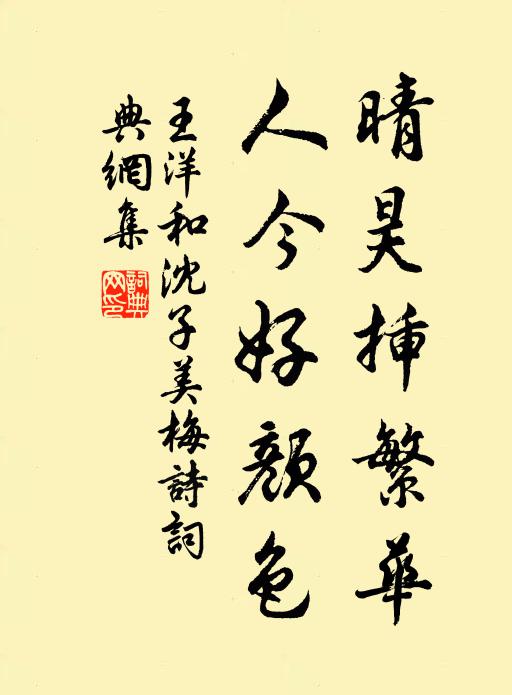 晴昊揷繁華
人今好顔色
王洋和沈子美梅詩詞
典網集
詞典網印